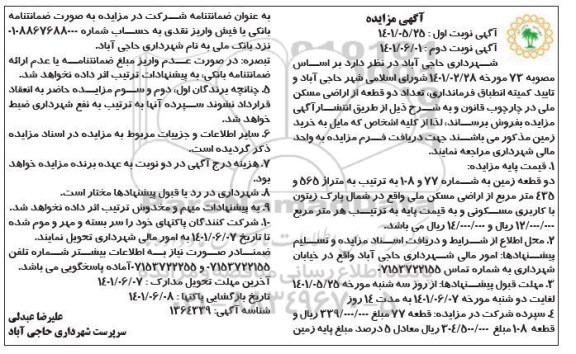 آگهی مزایده
آگهی نوبت اول : ۱۴۰۱/۰۵/۲۵
آگهی نوبت دوم : ۱۴۰۱/۰۶/۰۱
شهرداری حاجی آباد در نظر دارد بر اساس
مصوبه ۷۳ مورخه ۱۴۰۱/۰۲/۲۸ شورای اسلامی شهر حاجی آباد و
تایید کمیته انطباق فرمانداری، تعداد دو قطعه از اراضی مسکن
ملی در چارچوب قانون و به شرح ذیل از طریق انتشار آگهی
مزایده بفروش برساند، لذا از کلیه اشخاص که مایل به خرید
زمین مذکور می باشند جهت دریافت فرم مزایده به واحد
مالی شهرداری مراجعه نمایند.
۱. قیمت پایه مزایده:
دو قطعه زمین به شماره ۷۷ و ۱۰۸ به ترتیب به متراژ ۵۶۵ و
۴۳۵ متر مربع از اراضی مسکن ملی واقع در شمال پارک زیتون
با کاربری مسکونی و به قیمت پایه به ترتیب هر متر مربع
۱۲/۰۰۰/۰۰۰ ریال و ۱۴/۰۰۰/۰۰۰ ریال می باشد.
۲. محل اطلاع از شرایط و دریافت اسناد مزایده و تسلیم
پیشنهادها: امور مالی شهرداری حاجی آباد واقع در خیابان
شهرداری به شماره تماس ۰۷۱۵۳۷۲۲۱۵۵
۳. مهلت قبول پیشنهادها: از روز سه شنبه مورخه ۱۴۰۱/۰۵/۲۵
لغایت دو شنبه مورخه ۱۴۰۱/۰۶/۰۷ به مدت ۱۴ روز
۴. سپرده شرکت در مزایده: قطعه ۷۷ مبلغ ۳۳۹/۰۰۰/۰۰۰ ریال و
قطعه ۱۰۸ مبلغ ۳۰۴/۵۰۰/۰۰۰ ریال معادل ۵ درصد مبلغ پایه زمین
به عنوان ضمانتنامه شرکت در مزایده به صورت ضمانتنامه
بانکی یا فیش واریز نقدی به حساب شماره ۰۱۰۸۸۶۷۶۸۸۰۰۰
نزد بانک ملی به نام شهرداری حاجی آباد.
تبصره: در صورت عدم واریز مبلغ ضمانتنامه یا عدم ارائه
ضمانتنامه بانکی، به پیشنهادات ترتیب اثر داده نخواهد شد.
۵. چنانچه برندگان اول، دوم و سوم مزایده حاضر به انعقاد
قرارداد نشوند سپرده آنها به ترتیب به نفع شهرداری ضبط
خواهد شد.
۶. سایر اطلاعات و جزییات مربوط به مزایده در اسناد مزایده
ذکر گردیده است.
۷. هزینه درج آگهی در دو نوبت به عهده برنده مزایده خواهد
بود.
۸. شهرداری در رد یا قبول پیشنهادها مختار است.
۹. به پیشنهادات مبهم و مخدوش ترتیب اثر داده نخواهد شد.
۱۰. شرکت کنندگان پاکتهای خود را سر بسته و مهر و موم شده
تا تاریخ ۱۴۰۱/۰۶/۰۷ به امور مالی شهرداری تحویل نمایند.
ضمنا در صورت نیاز به اطلاعات بیشتر شماره تلفن
۰۷۱۵۳۷۲۲۱۵۵ و ۰۷۱۵۳۷۲۳۱۵۵ آماده پاسخگویی می باشد.
آخرین مهلت تحویل مدارک : ۱۴۰۱/۰۶/۰۷
تاریخ بازگشایی پاکتها : ۱۴۰۱/۰۶/۰۸
شناسه آگهی: ۱۳۶۴۳۳۹
علیرضا عبدلی
سرپرست شهرداری حاجی آباد